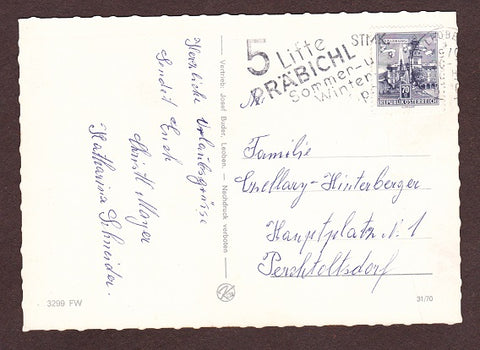 Herzliche Urlaubsgrüsse
Sendet Euch
Christl Mayer
Katharina Schneider.
Vertrieb: Josef Buder, Leoben. — Nachdruck verboten
5 Lifte
PRÄBICHL
STMK.
Sommer-u
Winter
REPUBLIK ÖSTERREICH
70
An
Familie
Hinterberger
Hauptplatz N. 1
Perchtoldsdorf
3299 FW
31/70